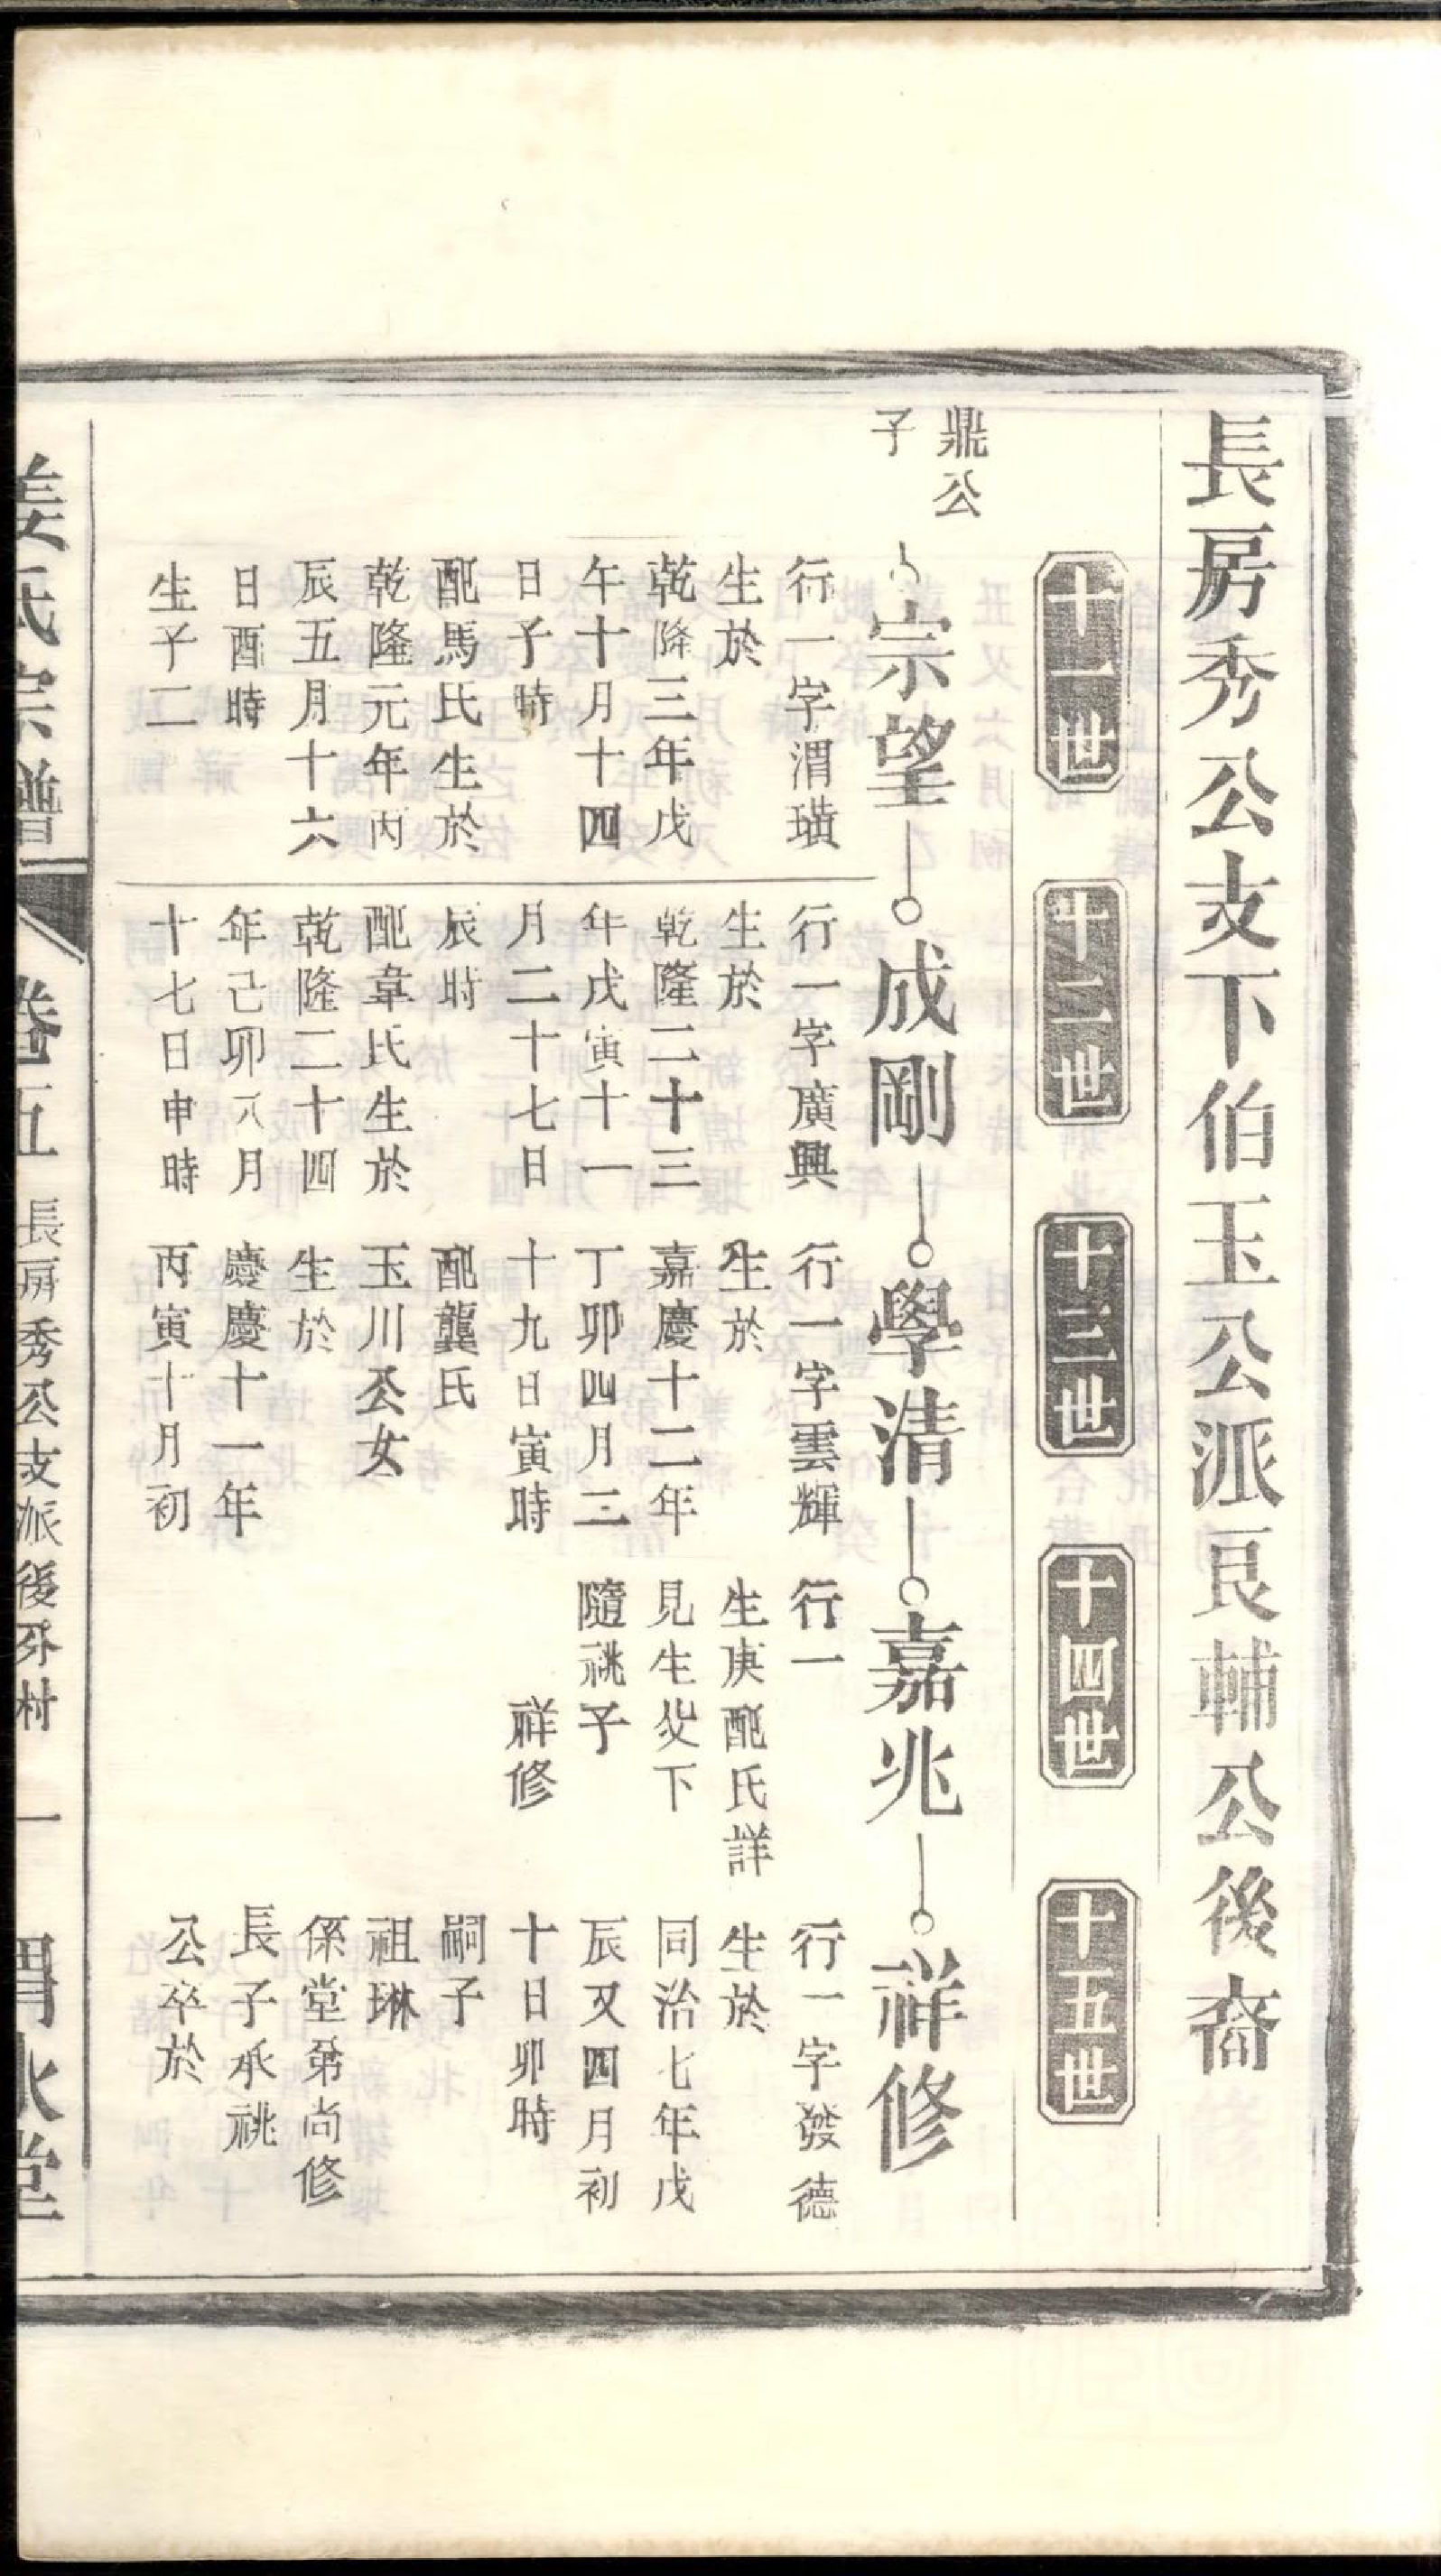 長房秀公支下伯玉公派良輔公後裔
十一世
十二世
十三世
十四世
十五世
鼎公
子
宗望
成剛
學清
嘉兆
祥修
行一字渭璜
生於
乾隆三年戊
午十月十四
日子時
配馬氏生於
乾隆元年丙
辰五月十六
日酉時
生子二
行一字廣興
生於
乾隆二十三
年戊寅十一
月二十七日
辰時
配韋氏生於
乾隆二十四
年己卯八月
十七日申時
行一字雲輝
生於
嘉慶十二年
丁卯四月三
十九日寅時
配龔氏
玉川公女
生於
慶慶十一年
丙寅十月初
行一
生庚配氏詳
見生父下
隨祧子
祥修
行一字發德
生於
同治七年戊
辰又四月初
十日卯時
嗣子
祖琳
係堂弟尚修
長子承祧
公卒於
姜氏宗譜
卷五
長房秀公支派後牙村
一
渭水堂